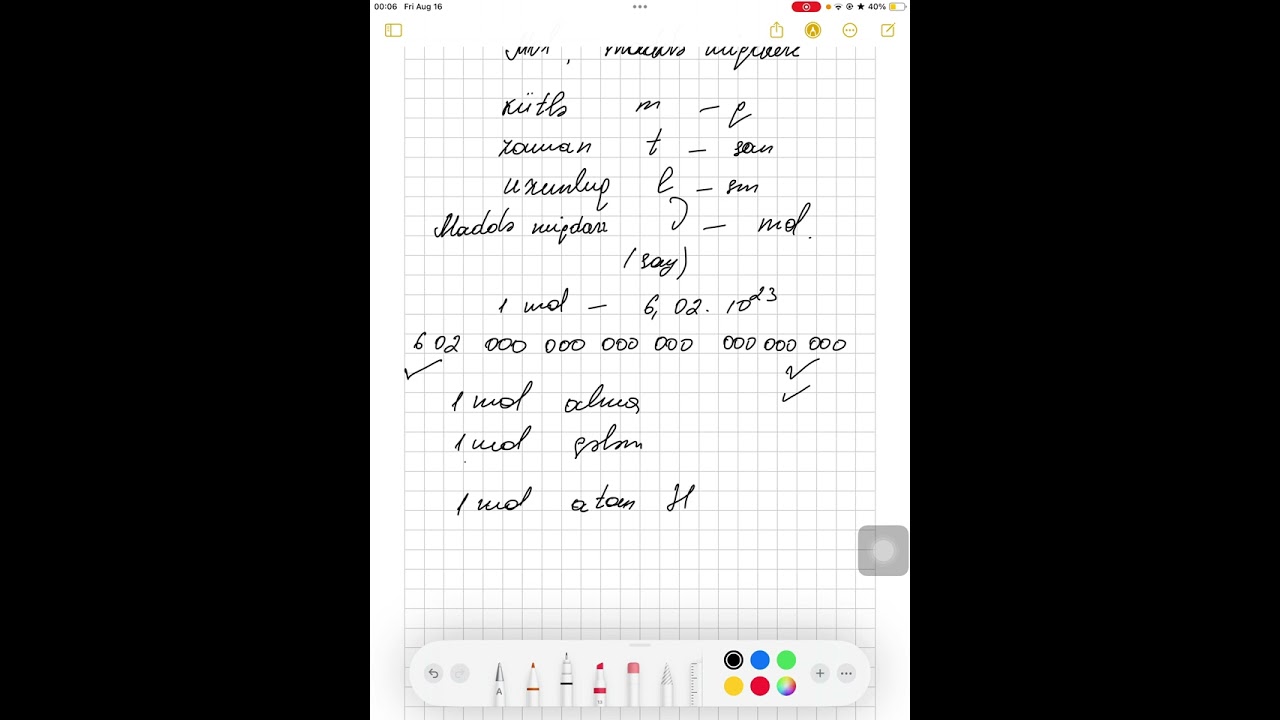 00:06 Fri Aug 16
40%
Mol, maddə miqdarı
kütlə m – q
zaman t – san
uzunluq l – sm
Maddə miqdarı ν – mol.
(say)
1 mol – 6,02 · 10²³
6 02 000 000 000 000 000 000 000
1 mol alma
1 mol qələm
1 mol atom H